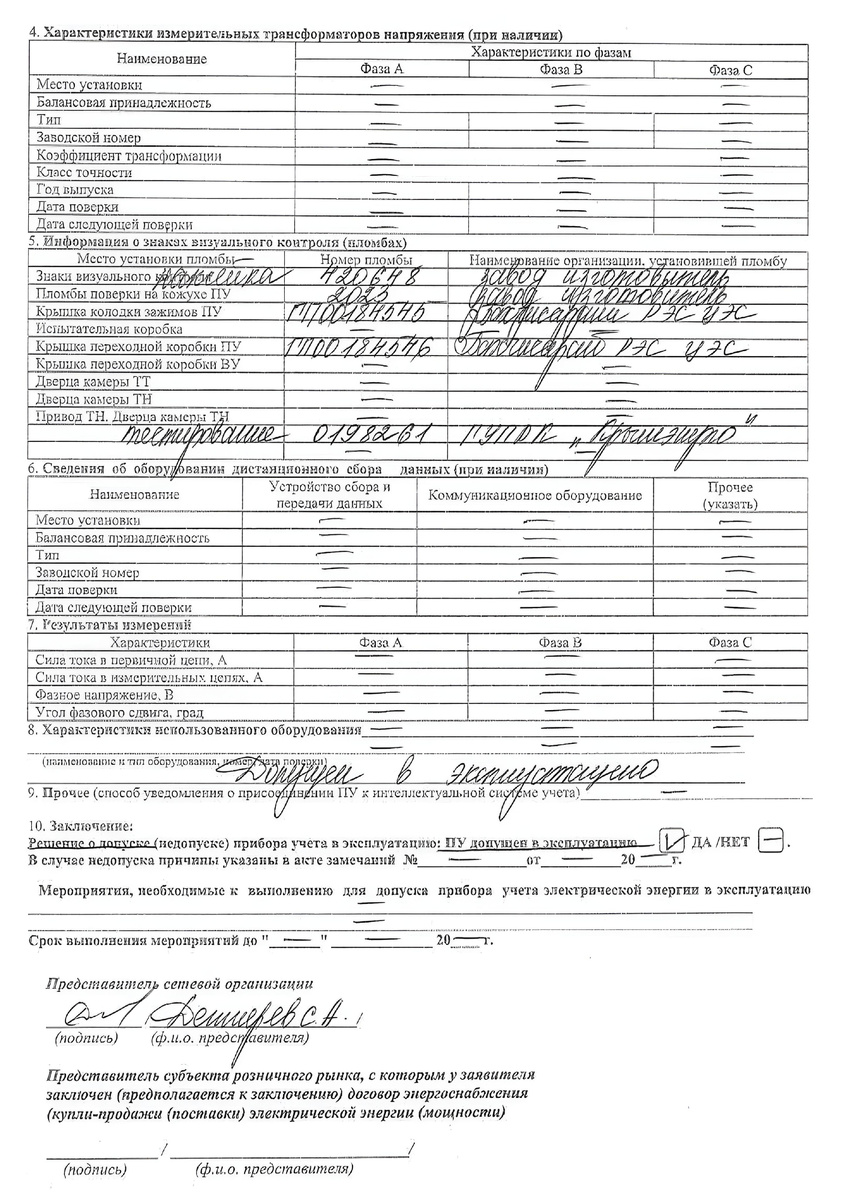 4. Характеристики измерительных трансформаторов напряжения (при наличии)
Наименование Характеристики по фазам
Фаза А Фаза В Фаза С
Место установки — — —
Балансовая принадлежность — — —
Тип — — —
Заводской номер — — —
Коэффициент трансформации — — —
Класс точности — — —
Год выпуска — — —
Дата поверки — — —
Дата следующей поверки — — —
5. Информация о знаках визуального контроля (пломбах)
Место установки пломбы Номер пломбы Наименование организации, установившей пломбу
Знаки визуального наклейка 420648 завод изготовитель
Пломбы поверки на кожухе ПУ 2023 завод изготовитель
Крышка колодки зажимов ПУ ГП00184545 РЭС ЦЭС
Испытательная коробка — —
Крышка переходной коробки ПУ ГП00184546 РЭС ЦЭС
Крышка переходной коробки ВУ — —
Дверца камеры ТТ — —
Дверца камеры ТН — —
Привод ТН, Дверца камеры ТН — —
тестирование 0198261 ГУПРК "Крымэнерго"
— —
6. Сведения об оборудовании дистанционного сбора данных (при наличии)
Наименование Устройство сбора и передачи данных Коммуникационное оборудование Прочее (указать)
Место установки — — —
Балансовая принадлежность — — —
Тип — — —
Заводской номер — — —
Дата поверки — — —
Дата следующей поверки — — —
7. Результаты измерений
Характеристики Фаза А Фаза В Фаза С
Сила тока в первичной цепи, А — — —
Сила тока в измерительных цепях, А — — —
Фазное напряжение, В — — —
Угол фазового сдвига, град — — —
8. Характеристики использованного оборудования — — —
— —
(наименование и тип оборудования, номер, дата поверки)
Допущен в эксплуатацию
9. Прочее (способ уведомления о присоединении ПУ к интеллектуальной системе учета) —
10. Заключение:
Решение о допуске (недопуске) прибора учета в эксплуатацию: ПУ допущен в эксплуатацию V ДА /НЕТ — .
В случае недопуска причины указаны в акте замечаний № — от — 20 — г.
Мероприятия, необходимые к выполнению для допуска прибора учета электрической энергии в эксплуатацию
—
—
Срок выполнения мероприятий до " — " — 20 — г.
Представитель сетевой организации
С.А.
(подпись) (ф.и.о. представителя)
Представитель субъекта розничного рынка, с которым у заявителя
заключен (предполагается к заключению) договор энергоснабжения
(купли-продажи (поставки) электрической энергии (мощности)
/ /
(подпись) (ф.и.о. представителя)